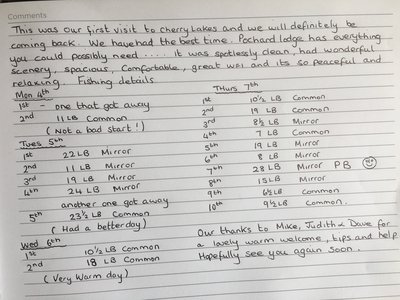 Comments
This was our first visit to cherry Lakes and we will definitely be
coming back. We have had the best time. Pochard lodge has everything
you could possibly need ..... it was spotlessly clean, had wonderful
scenery, spacious, comfortable, great WiFi and its so peaceful and
relaxing. Fishing details
Mon 4th
1st - one that got away
2nd 11 LB Common
(Not a bad start!)
Tues 5th
1st 22 LB Mirror
2nd 11 LB Mirror
3rd 19 LB Mirror
4th 24 LB Mirror
another one got away
5th 23½ LB Common
(Had a better day)
Wed 6th
1st 10½ LB Common
2nd 18 LB Common
(Very Warm day)
Thurs 7th
1st 10½ LB Common
2nd 19 LB Common
3rd 8½ LB Mirror
4th 7 LB Common
5th 19 LB Mirror
6th 8 LB Mirror
7th 28 LB Mirror PB
8th 15 LB Mirror
9th 6½ LB Common
10th 9½ LB Common.
Our thanks to Mike, Judith & Dave for
a lovely warm welcome, tips and help
Hopefully see you again soon.